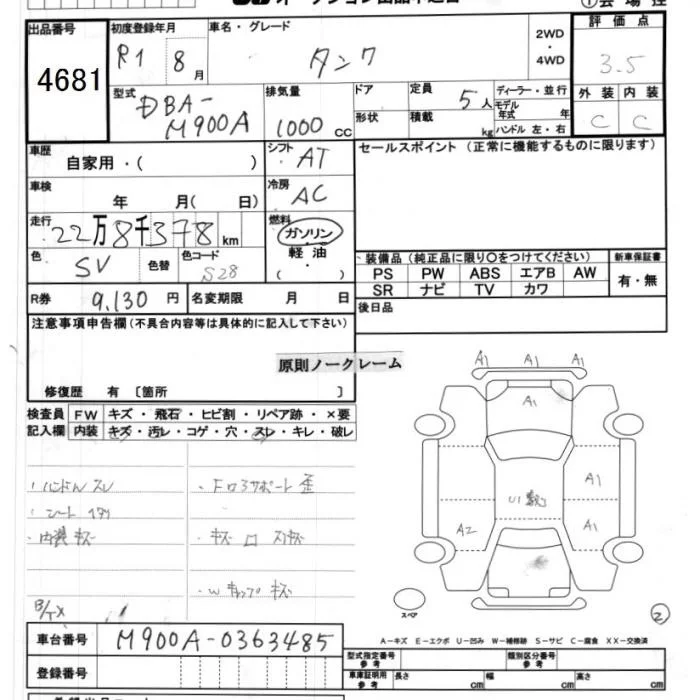 出品番号
4681
初度登録年月
R1 8月
車名・グレード
タンク
2WD
・
4WD
評価点
3.5
外装 内装
C C
型式
DBA-
M900A
排気量
1000 CC
ドア
形状
定員
5人
積載 kg
ディーラー・並行
モデル
年式 年
ハンドル 左・右
車歴
自家用・( )
シフト
AT
セールスポイント (正常に機能するものに限ります)
車検
年 月( 日)
冷房
AC
走行
22万8千378km
燃料
ガソリン
軽油
( )
色
SV
色替
色コード
S28
装備品 (純正品に限り〇をつけてください)
新車保証書
PS PW ABS エアB AW
SR ナビ TV カワ
有・無
R券 9,130円
名変期限 月 日
後日品
注意事項申告欄(不具合内容等は具体的に記入して下さい)
原則ノークレーム
修復歴 有 〔箇所 〕
検査員 FW キズ・飛石・ヒビ割・リペア跡・×要
記入欄 内装 キズ・汚レ・コゲ・穴・スレ・キレ・破レ
・ハンドル スレ
・シート
・内装 キズ
・Fロアサポート 歪
・W キャップ キズ
A1 A1 A1
A1
A1
U1 数
A2
A1
スペア
2
A-キズ E-エクボ U-凹み W-補修跡 S-サビ C-腐食 XX-交換済
車台番号 M900A-0363485
登録番号
型式指定番号
参考
類別区分番号
参考
車庫証明用
参考
長さ cm 幅 cm 高さ cm